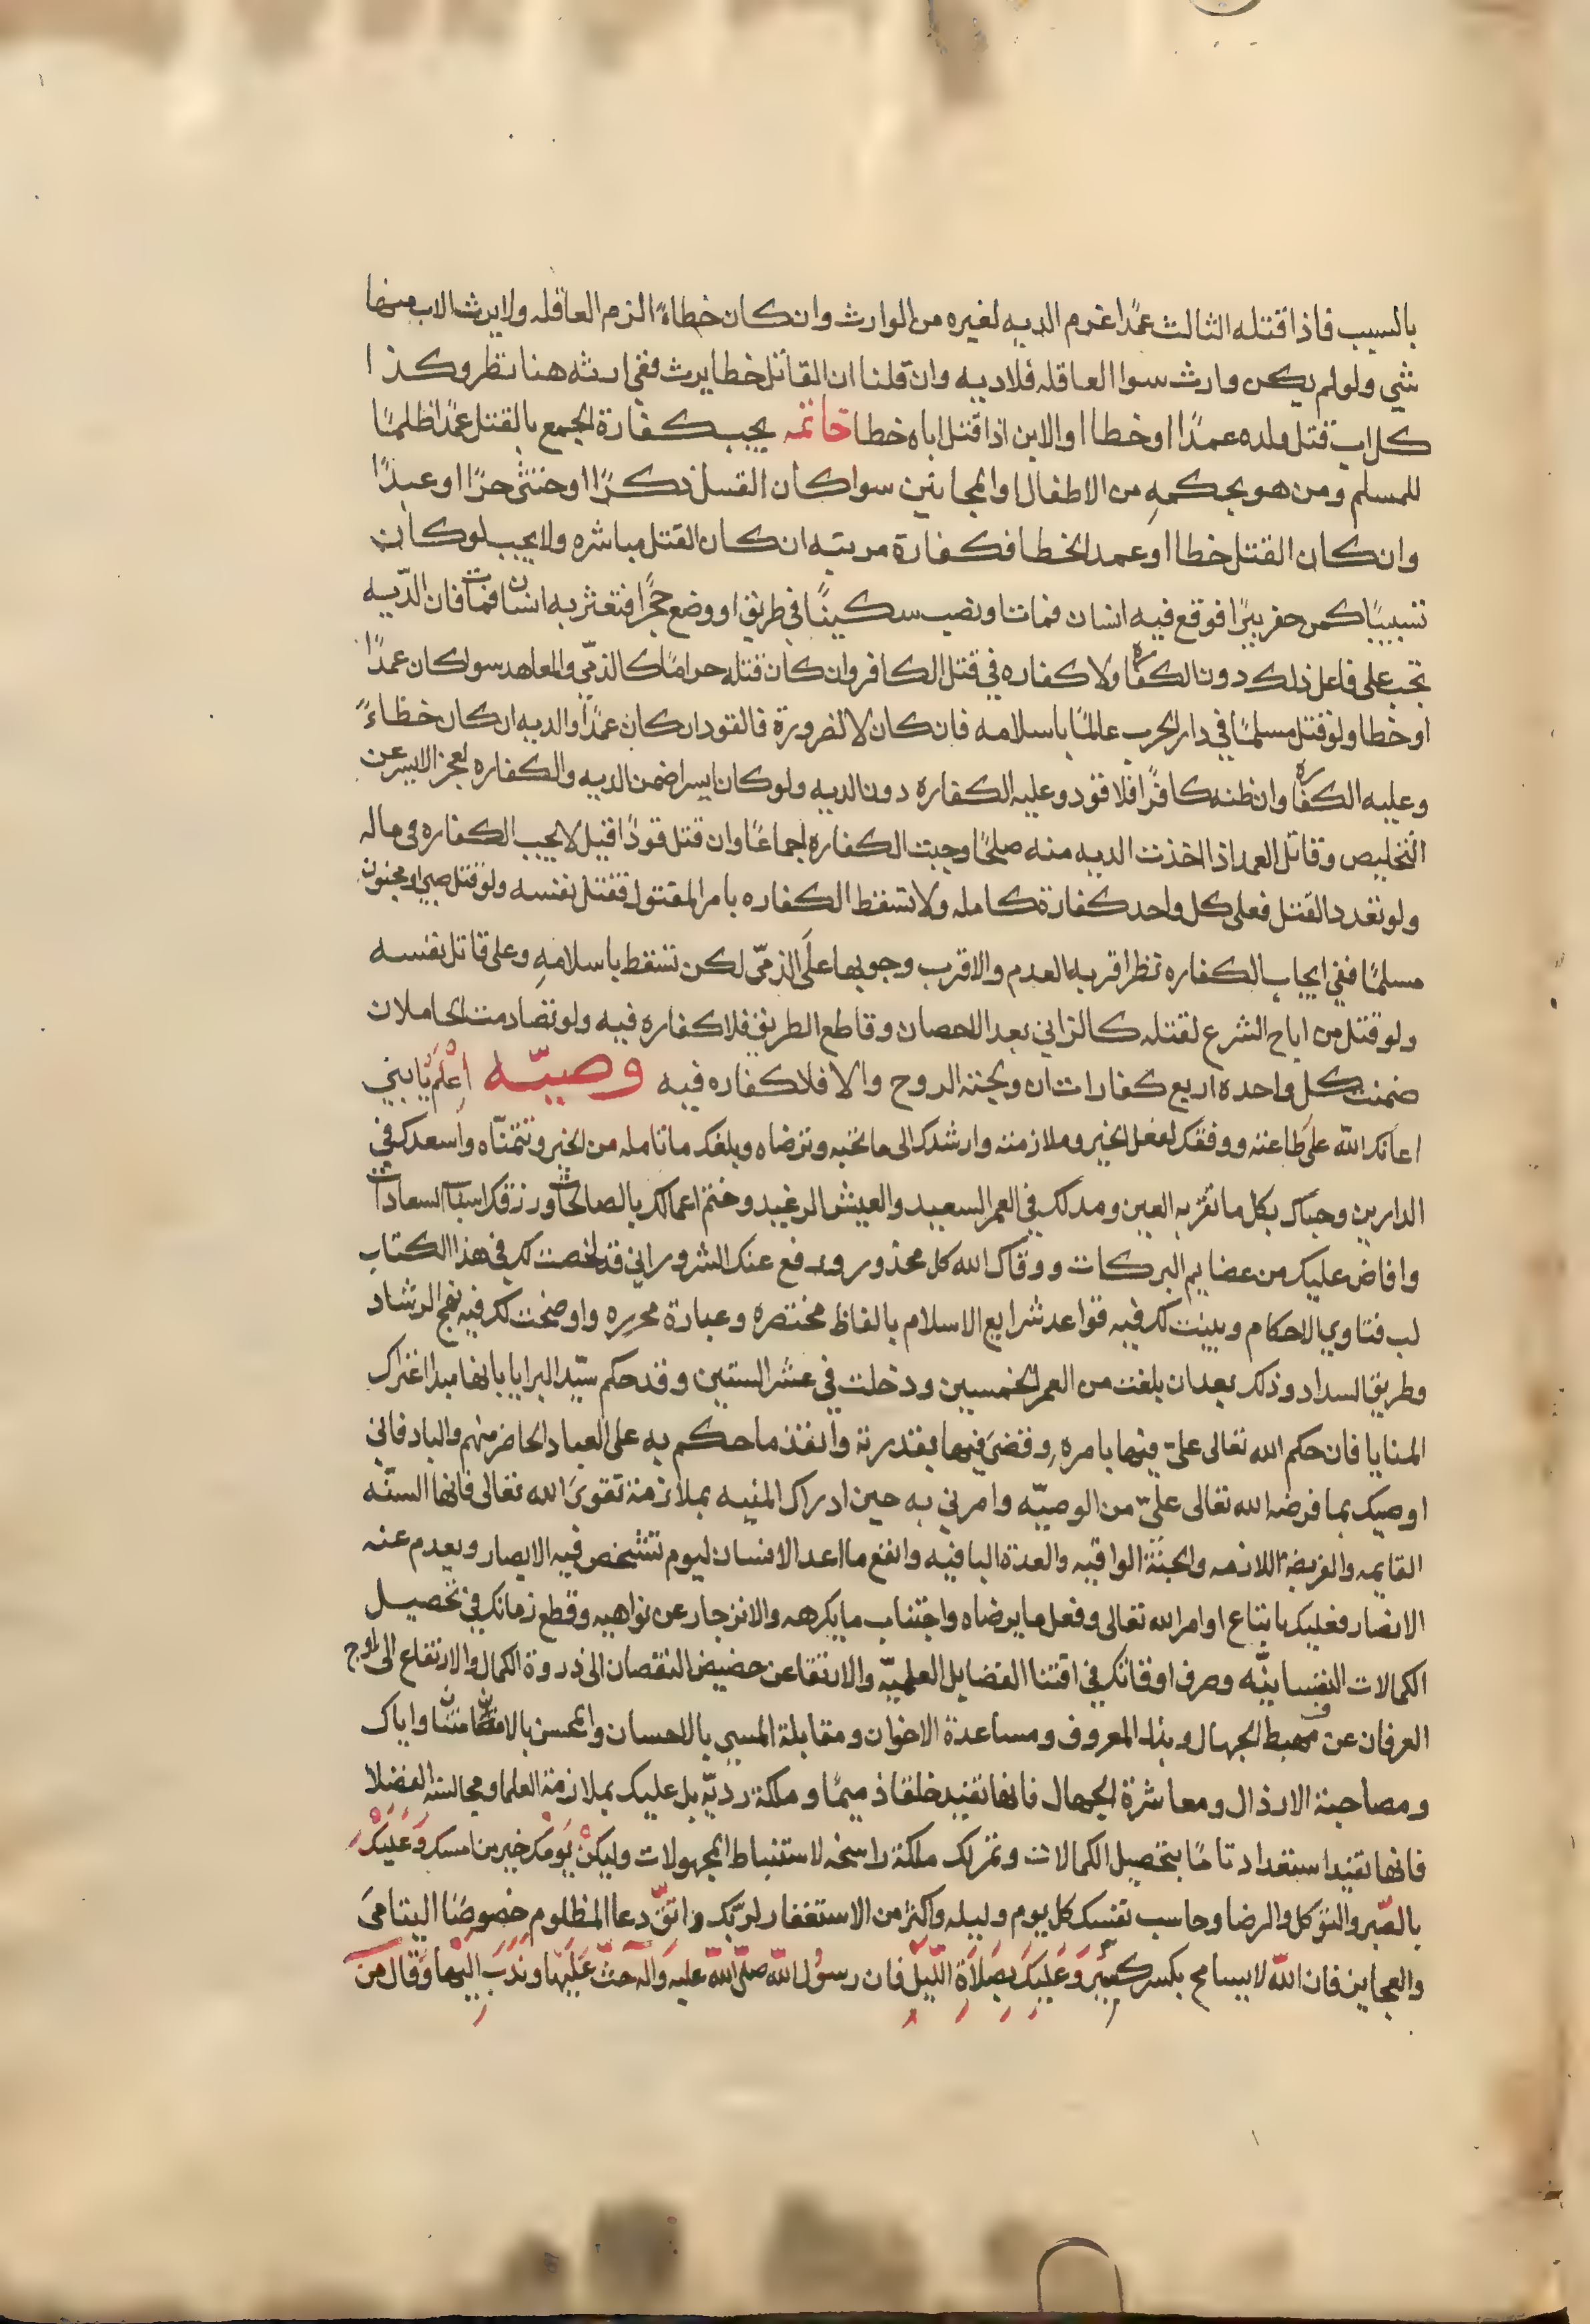 بالسبب فاذا قتله الثالث عمدًا غرم الديه لغيره من الوارث وان كان خطاءً الزم العاقله ولا يرث الاب منها
شي ولو لم يكن وارث سوا العاقله فلا ديه وان قلنا ان القاتل خطا يرث ففي ارثه هنا نظر وكذا
كل اب قتل ولده عمدًا او خطا او الابن اذا قتل اباه خطا خاتمه يجب كفارة الجمع بالقتل عمدًا ظلمًا
للمسلم ومن هو بحكمهِ من الاطفال والمجانين سوا كان القتيل ذكرًا او خنثى حرًا او عبدًا
وان كان القتل خطا او عمد الخطا فكفارة مرتبه ان كان القتل مباشره ولا يجب لو كان
تسبيبًا كمن حفر بيرًا فوقع فيه انسان فمات او نصب سكينًا في طريق او وضع حجرًا فتعثر به انسان فمات فان الدّيه
تجب على فاعل ذلك دون الكفاره ولا كفاره في قتل الكافر وان كان قتله حرامًا كالذمّي والمعاهد سوا كان عمدًا
او خطا ولو قتل مسلمًا في دار الحرب عالمًا باسلامه فان كان لا لضرورة فالقود ان كان عمدًا والديه ان كان خطاءً
وعليه الكفاره وان ظنه كافرًا فلا قود وعليه الكفاره دون الديه ولو كان اسيرا ضمن الديه والكفاره لعجز الاسير عن
التخليص وقاتل العمد اذا اخذت الديه منه صلحًا وجبت الكفاره اجماعًا وان قتل قودًا قيل لا يجب الكفاره في ماله
ولو تعدد القتل فعلى كل واحد كفارة كامله ولا تسقط الكفاره بامر المقتول فقتل نفسه ولو قتل صبي او مجنون
مسلمًا ففي ايجاب الكفاره نظر اقربه العدم والاقرب وجوبها على الذمّي لكن تسقط باسلامهِ وعلى قاتل نفسه
ولو قتل من اباح الشرع لقتله كالزاني بعد الاحصان وقاطع الطريق فلا كفاره فيه ولو تصادمت الحاملان
ضمنت كل واحده اربع كفارات ان ولجته الروح والا فلا كفاره فيه وصيّه اعْلمْ يَا بني
اعانك الله على طاعته ووفقك لفعل الخير وملازمته وارشدك الى ما يحبه وترضاه وبلغك ما تامله من الخير وتتمنّاه واسعدك في
الدارين وحباك بكل ما تقر به العين ومد لك في العمر السعيد والعيش الرغيد وختم اعمالك بالصالحات ورزقك اسباب السعادات
وافاض عليك من عضايم البركات ووقاك الله كل محذور ودفع عنك الشرور اني قد لخصت لك في هذا الكتاب
لب فتاوي الاحكام وبينت لك فيه قواعد شرايع الاسلام بالفاظ مختصره وعبارة محرره واوضحت لك فيه نهج الرشاد
وطريق السداد وذلك بعد ان بلغت من العمر الخمسين ودخلت في عشر الستين وقد حكم سيّد البرايا بانها مبدا اغتراك
المنايا فان حكم الله تعالى عليّ فيها بامرهِ وقضىَ فيها بقدرته وانفذ ما حكم به على العباد الحاضر منهم والباد فاني
اوصيك بما فرضه الله تعالى عليّ من الوصيّه وامرني به حين ادراك المنيه بملازمة تقوىَ الله تعالى فانها السنّه
القايمه والفريضة اللازمه والجنّة الواقيه والعدة الباقيه وانفع ما اعد الانسان ليوم تشخص فيه الابصار ويعدم عنه
الانصار فعليك باتباع اوامر الله تعالى وفعل ما يرضاه واجتناب ما يكرهه والانزجار عن نواهيه وقطع زمانك في تحصيل
الكمالات النفسانيّه وصرف اوقاتك في اقتنا الفضايل العلميّه والارتقا عن حضيض النقصان الى ذروة الكمال والارتفاع الى اوج
العرفان عن مهبط الجهال وبذل المعروف ومساعدة الاخوان ومقابلة المسي بالاحسان والمحسن بالامتنان واياك
ومصاحبة الارذال ومعاشرة الجهال فانها تفيد خلقا ذميمًا وملكة رديّه بل عليك بملازمة العلما ومجالسة الفضلا
فانها تفيد استعداد تامًا بتحصيل الكمالات وتمر لك ملكة راسخه لاستنباط المجهولات وليكنْ يَومْك خير من امسك وَعَليَكْ
بالصّبر والتوكل والرضا وحاسب نفسك كل يوم وليله واكثر من الاستغفار لربّك واتقّ دعا المظلوم خصوصًا اليتامىَ
والعجاين فان الله لا يسامح بكسر كسير وَعَليَكَ بصَلاَةِ اللّيَل فان رسوُل الله صلى الله عليه وآله حثّ عَليَها وندَبَ اليْها وَقال من